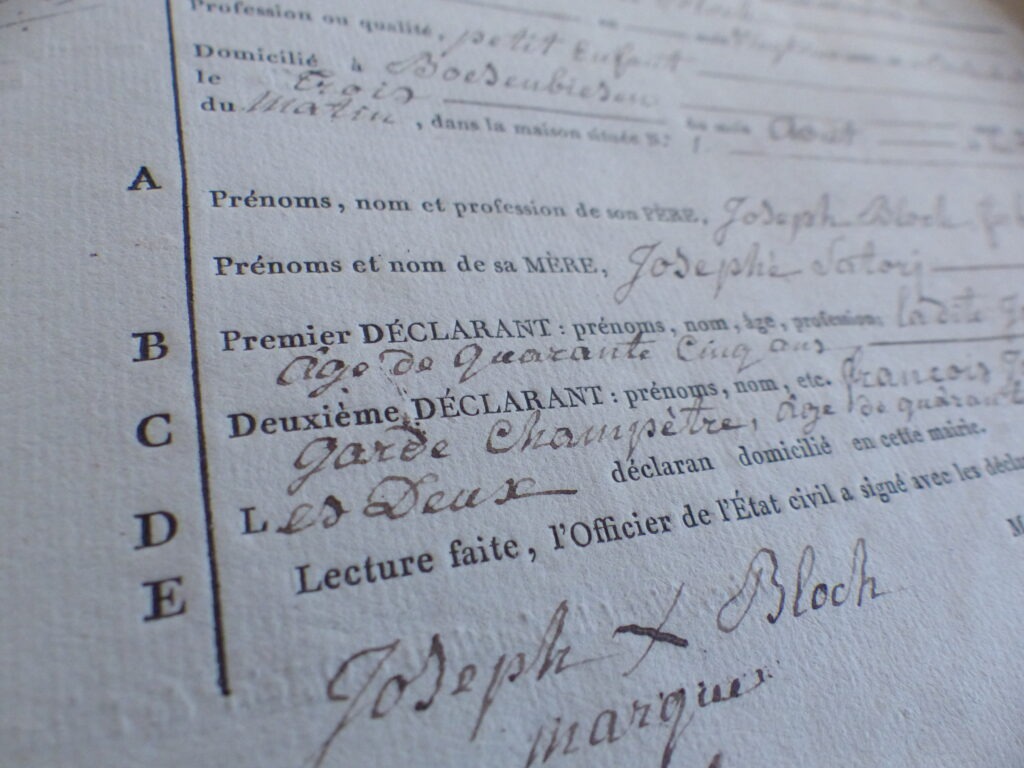 Profession ou qualité, petit Enfant
Domicilié à Boesenbiesen
le Trois
du Matin, dans la maison située N.º 1. Août
A
Prénoms, nom et profession de son PÈRE, Joseph Bloch
Prénoms et nom de sa MÈRE, Josephe Satori
B Premier DÉCLARANT : prénoms, nom, âge, profession; ladite
âge de quarante Cinq ans
C Deuxième DÉCLARANT : prénoms, nom, etc. françois
garde Champêtre, âge de quarante
D Les Deux déclaran domicilié en cette mairie.
E Lecture faite, l'Officier de l'État civil a signé avec les
Joseph X Bloch
marque